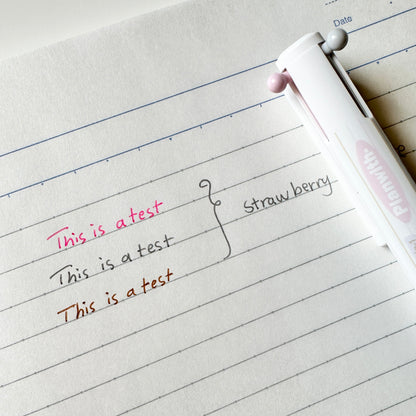 Date
This is a test
This is a test
This is a test
strawberry
Planwith